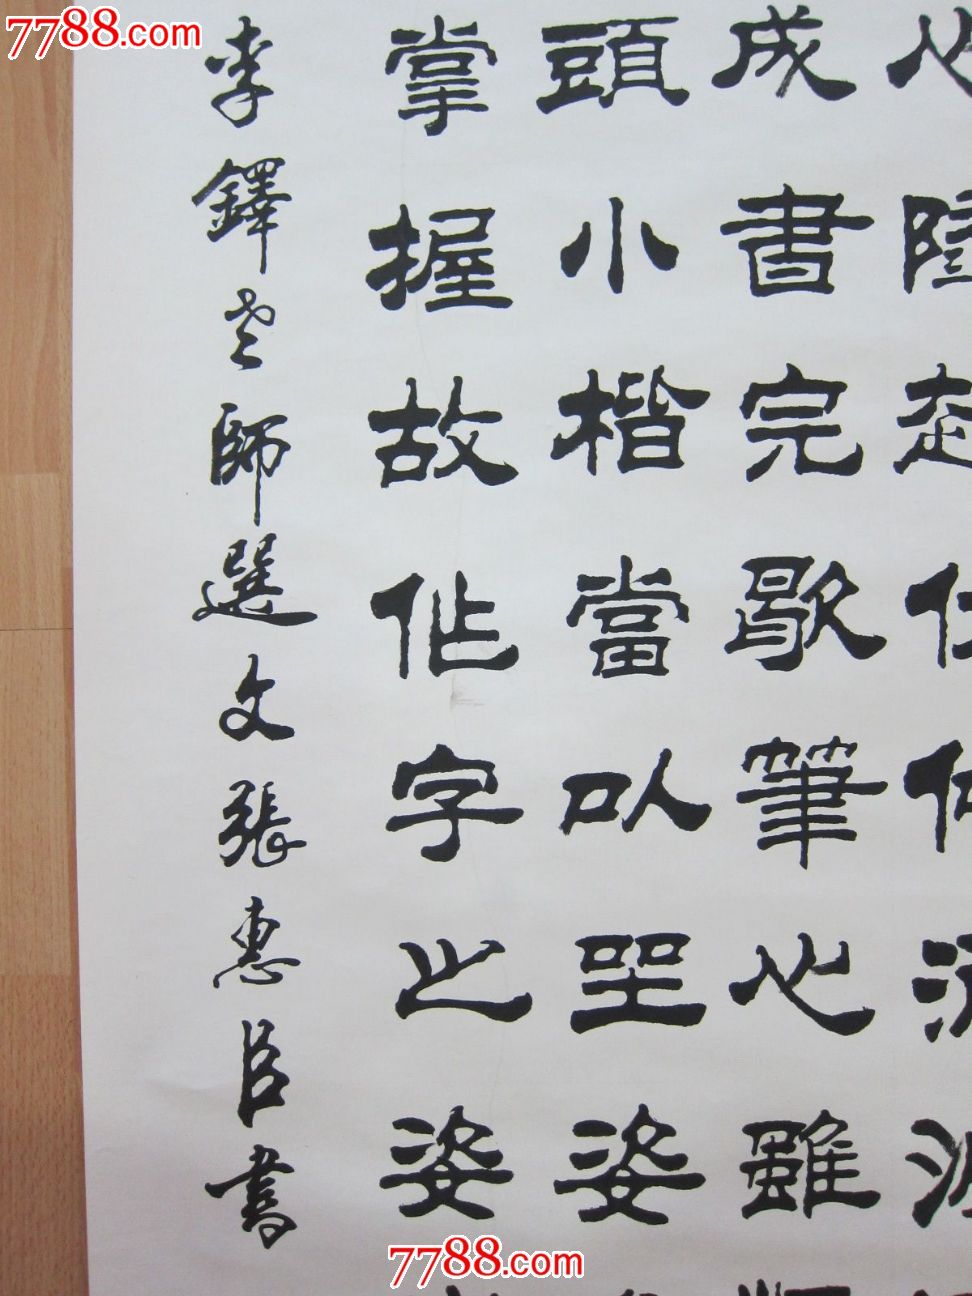 7788.com
心
成書完歇筆心雖
頭小楷當以坐姿
掌握故作字之姿
李鐸老師選文張惠臣書
7788.com